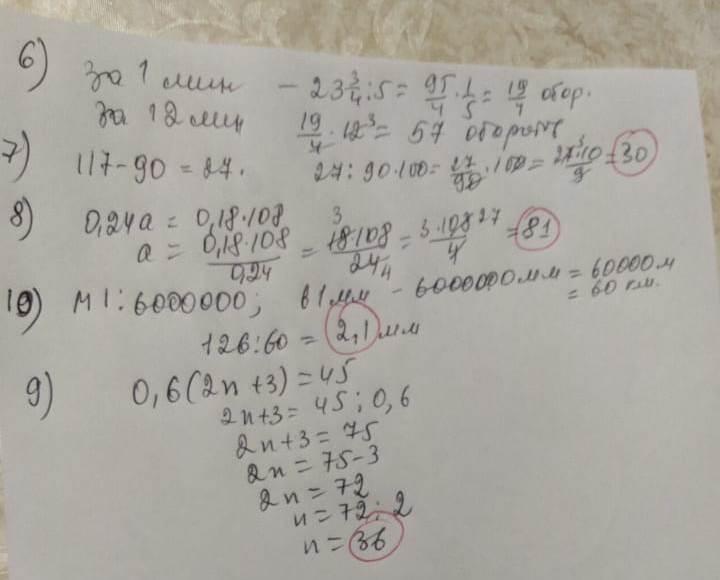 6) за 1 мин – 23 3/4 : 5 = 95/4 · 1/5 = 19/4 обор.
за 12 мин 19/4 · 12 3 = 57 оборотов
7) 117-90 = 27. 27 : 90 · 100 = 27/90 · 100 = 27 3 · 10/9 = 30
8) 0,24a = 0,18 · 108
a = 0,18 · 108/0,24 = 3 18 · 108/24 4 = 3 · 108 27/4 = 81
10) М 1 : 6000000; в 1 мм – 6000000 мм = 60000 м
= 60 км.
126 : 60 = 2,1 мм
9) 0,6(2n+3) = 45
2n+3 = 45 : 0,6
2n+3 = 75
2n = 75-3
2n = 72
n = 72 : 2
n = 36